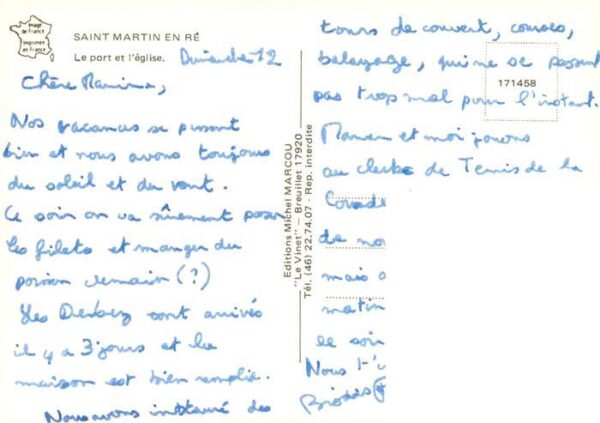 Image de France
Imprimé en France
SAINT MARTIN EN RÉ
Le port et l'église.
Dimanche 12
Chère Mamima,
Nos vacances se passent
bien et nous avons toujours
du soleil et du vent.
Ce soir on va sûrement poser
les filets et manger du
poisson demain (?)
Les Derbez sont arrivés
il y a 3 jours et la
maison est bien remplie.
Nous avons instauré des
Editions Michel MARCOU
"Le Vinet" – Breuillet 17920
Tél. (46) 22.74.07 - Rep. interdite
tours de couvert, courses,
balayage, qui ne se passent
pas trop mal pour l'instant.
171458
et moi jouons
au club de Tennis de la
de
mais
matin
ce soir
Nous